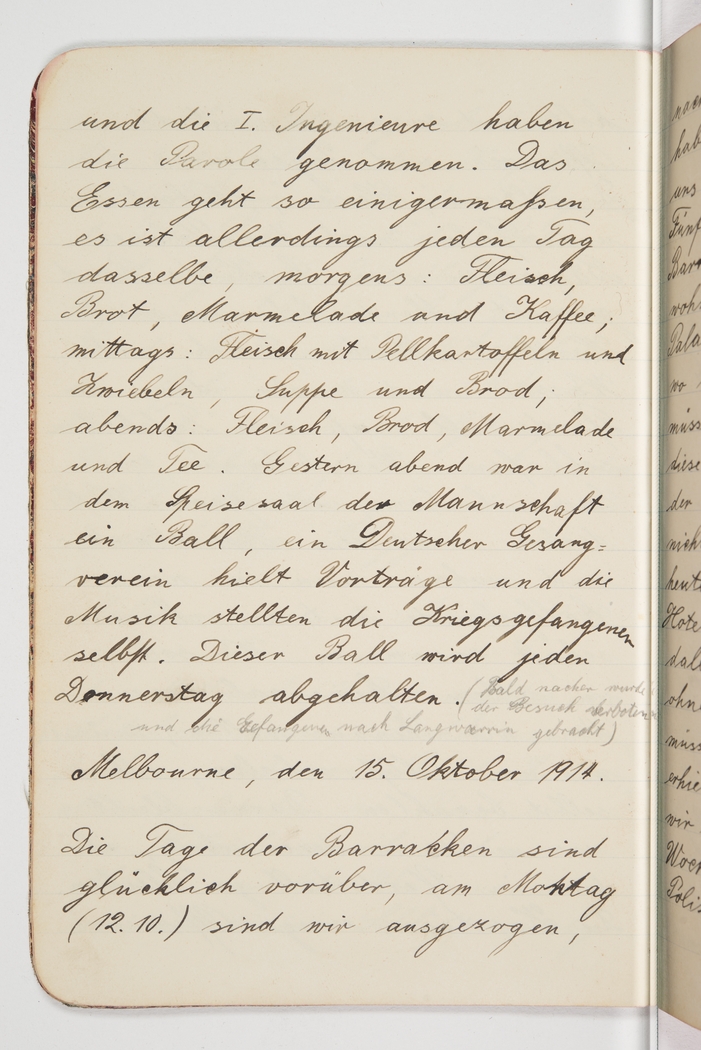 und die I. Ingenieure haben
die Parole genommen. Das
Essen geht so einigermaßen,
es ist allerdings jeden Tag
dasselbe, morgens: Fleisch,
Brot, Marmelade und Kaffee;
mittags: Fleisch mit Pellkartoffeln und
Zwiebeln, Suppe und Brod;
abends: Fleisch, Brod, Marmelade
und Tee. Gestern abend war in
dem Speisesaal der Mannschaft
ein Ball, ein Deutscher Gesang=
verein hielt Vorträge und die
Musik stellten die Kriegsgefangenen
selbst. Dieser Ball wird jeden
Donnerstag abgehalten. (Bald nacher wurde
der Besuch verboten
und die Gefangenen nach Langwarrin gebracht)
Melbourne, den 15. Oktober 1914.
Die Tage der Barracken sind
glücklich vorüber, am Montag
(12.10.) sind wir ausgezogen,
hab
uns
der
wir